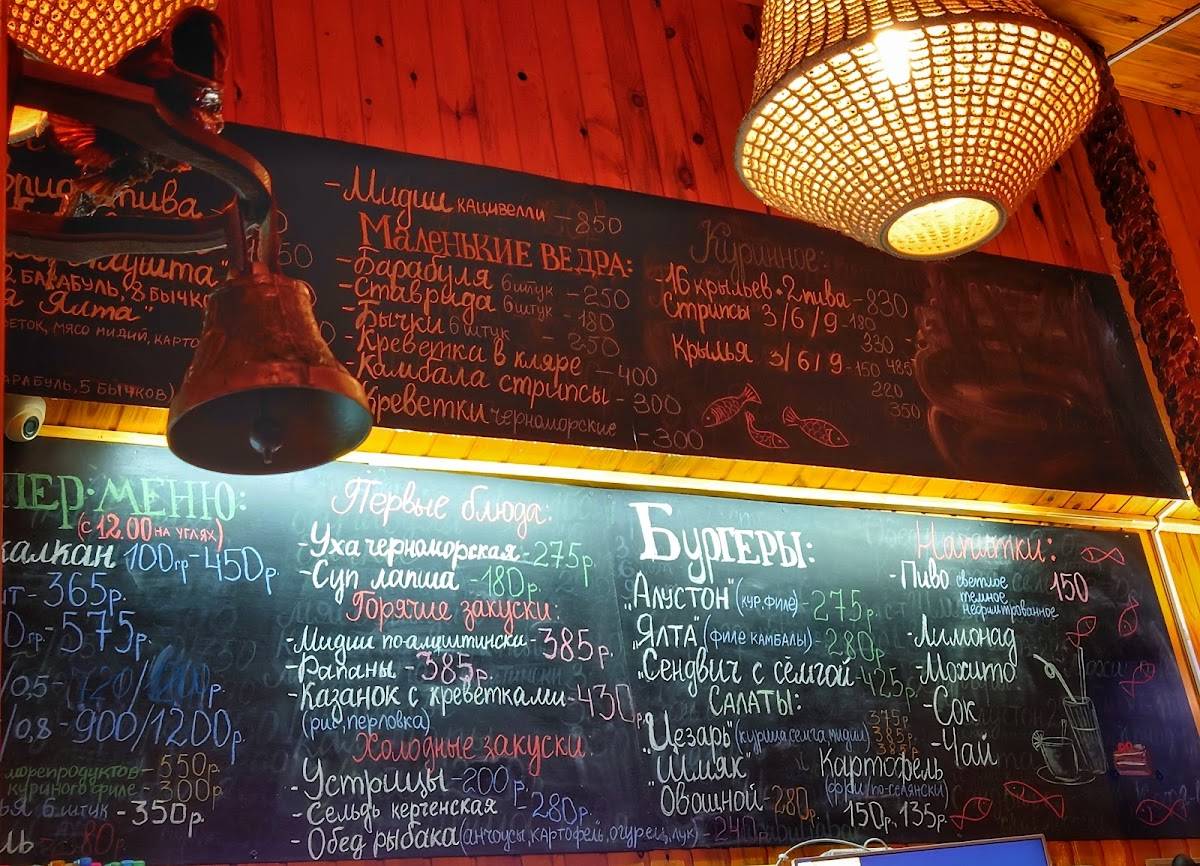 пива
"
2 БАРАБУЛЬ, 8 БЫЧКО
Ялта"
МЯСО МИДИЙ, КАРТО
5 БЫЧКОВ)
- Мидии кацивелли - 850
МАЛЕНЬКИЕ ВЕДРА:
- Барабуля 6 штук - 250
- Ставрида 6 штук - 180
- Бычки 6 штук - 250
- Креветка в кляре - 400
- Камбала стрипсы - 300
Креветки черноморские - 300
Куриное:
16 крыльев + 2 пива - 830
Стрипсы 3/6/9 - 180
330 - 485
Крылья 3/6/9 - 150
220
350
ПЕР·МЕНЮ:
(с 12.00 на углях)
калкан 100гр - 450р.
- 365р.
гр. - 575р.
/0,5 - 720/
/0,8 - 900/1200р.
морепродуктов - 550р.
куриного филе - 300р.
6 штук - 350р.
80р.
Первые блюда:
- Уха черноморская - 275р.
- Суп лапша - 180р.
Горячие закуски:
- Мидии по-алуштински - 385р.
- Рапаны - 385р.
- Казанок с креветками - 430р.
(рис, перловка)
Холодные закуски:
- Устрицы - 200р.
- Сельдь керченская - 280р.
- Обед рыбака (анчоусы, картофель, огурец, лук) - 240р.
БУРГЕРЫ:
"Алустон" (кур.филе) - 275р.
"Ялта" (филе камбалы) - 280р.
"Сендвич с сёмгой - 425р.
САЛАТЫ:
"Цезарь" (курица, семга, мидии) 375р. 385р. 385р.
"Шмяк"
"Овощной - 280р.
Картофель
(фри/по-селянски)
150р. 135р.
Напитки:
- Пиво светлое 150
темное
нефильтрованное
- Лимонад
- Мохито
- Сок
- Чай